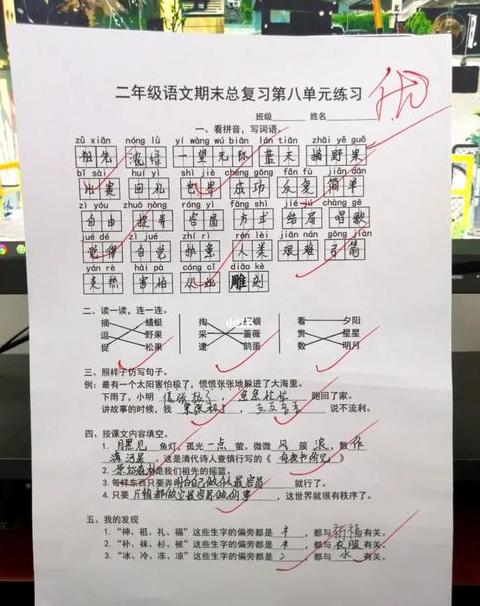 二年级语文期末总复习第八单元练习
优
班级 姓名
一、看拼音，写词语。
zǔ xiān nóng lǜ yí wàng wú biān lán tiān zhāi yě guǒ
祖先 浓绿 一望无际 蓝天 摘野果
bǐ sài huí yì shì jiè chéng gōng fǎn fù jiǎn dān
比赛 回礼 世界 成功 反复 简单
zì yóu zhuō nòng róng yì fāng shì jié jú chàng gē
自由 捉弄 容易 方式 结局 唱歌
jué dé zì jué zhí rì rén lèi jiān nán gōng jiàn
觉得 自觉 人类 艰难 弓箭
yán rè hài pà cóng cǐ diāo kè
炎热 害怕 从此 雕刻
二、读一读，连一连。
摘 蜻蜓 掏 蝈蝈 看 夕阳
逗 野果 采 蔷薇 赏 星星
捉 松果 逮 鹊蛋 数 明月
三、照样子仿写句子。
例：最有一个太阳害怕极了，慌慌张张地躲进了大海里。
下雨了，小明 慌张极了， 急急忙忙 跑回了家。
讲故事的时候，我 紧张极了， 说不流利。
四、按课文内容填空。
1. 月黑见 鱼灯，孤光 一点 萤。微微 风 簇 浪，散 作
满河星。这是清代诗人查慎行写的《 舟夜书所见 》
2. 原始森林 是我们祖先的摇篮。
3. 每样东西只要弄明白 就行了。
4. 只要 ，这世界就很有秩序了。
五、我的发现
1. “神、祖、礼、福”这些生字的偏旁都是 礻 ，都与 祈福 有关。
2. “补、袜、衫、被”这些生字的偏旁都是 衤 ，都与 衣服 有关。
3. “冰、冷、冻、凉”这些生字的偏旁都是 冫 ，都与 水 有关。